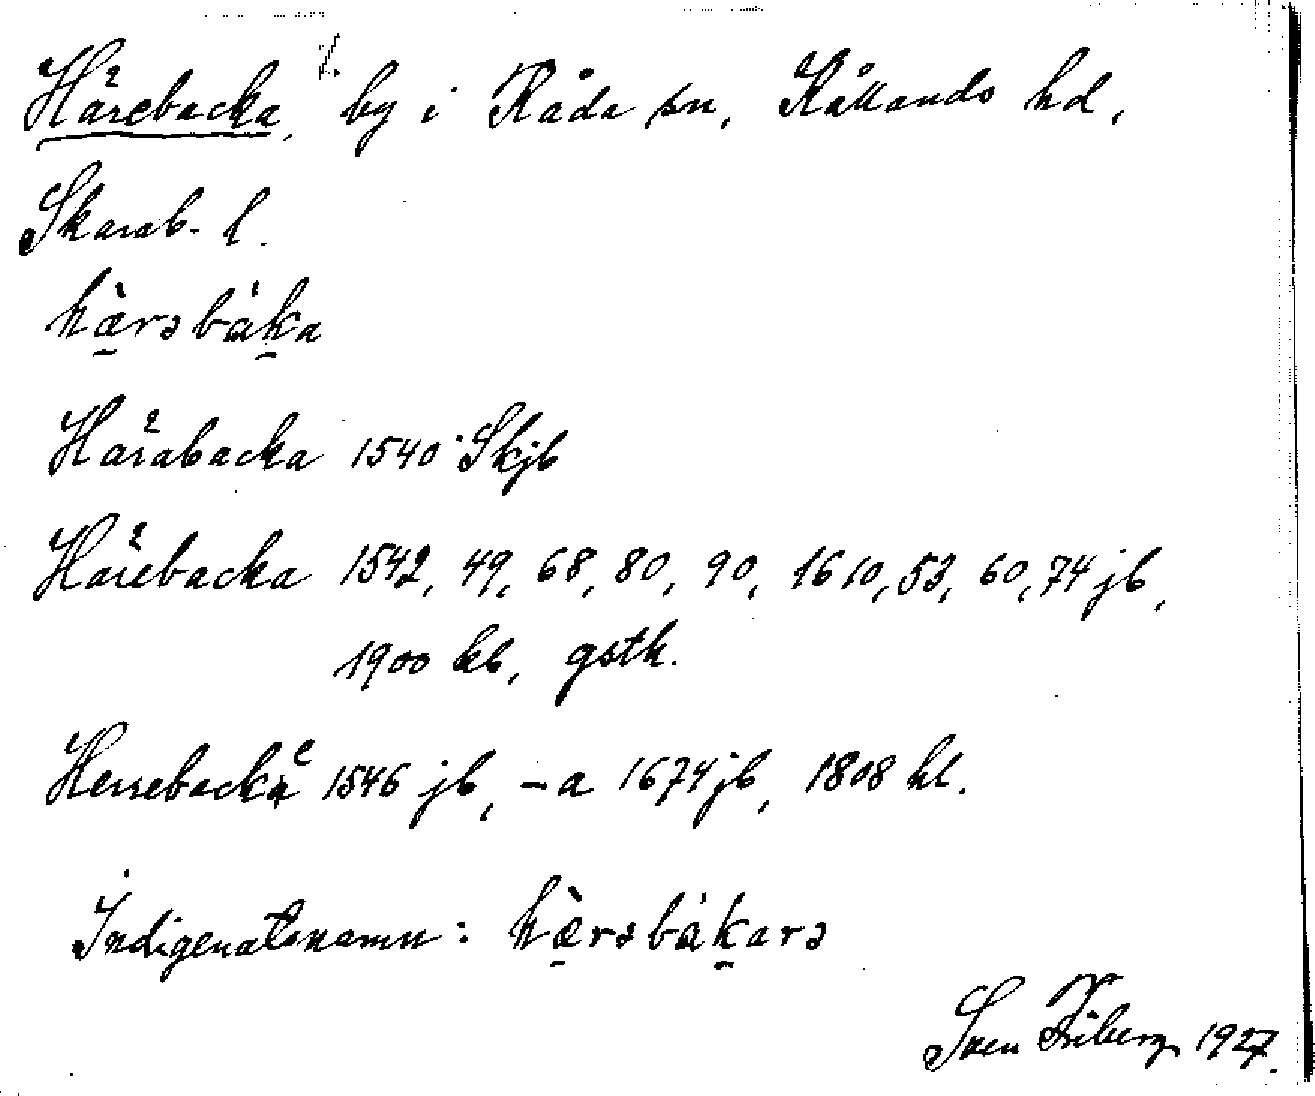 Härebacka, by i Råda sn, Kållands hd,
Skarab. l.
hæ̀rəbáka
Härabacka 1540 Skjb
Härebacka 1542, 49, 68, 80, 90, 1610, 53, 60, 74 jb,
1900 kb, gstk.
Herrebacke 1546 jb, -a 1674 jb, 1808 hl.
Indigenatsnamn: hæ̀rəbákarə
Sven Friberg 1927.